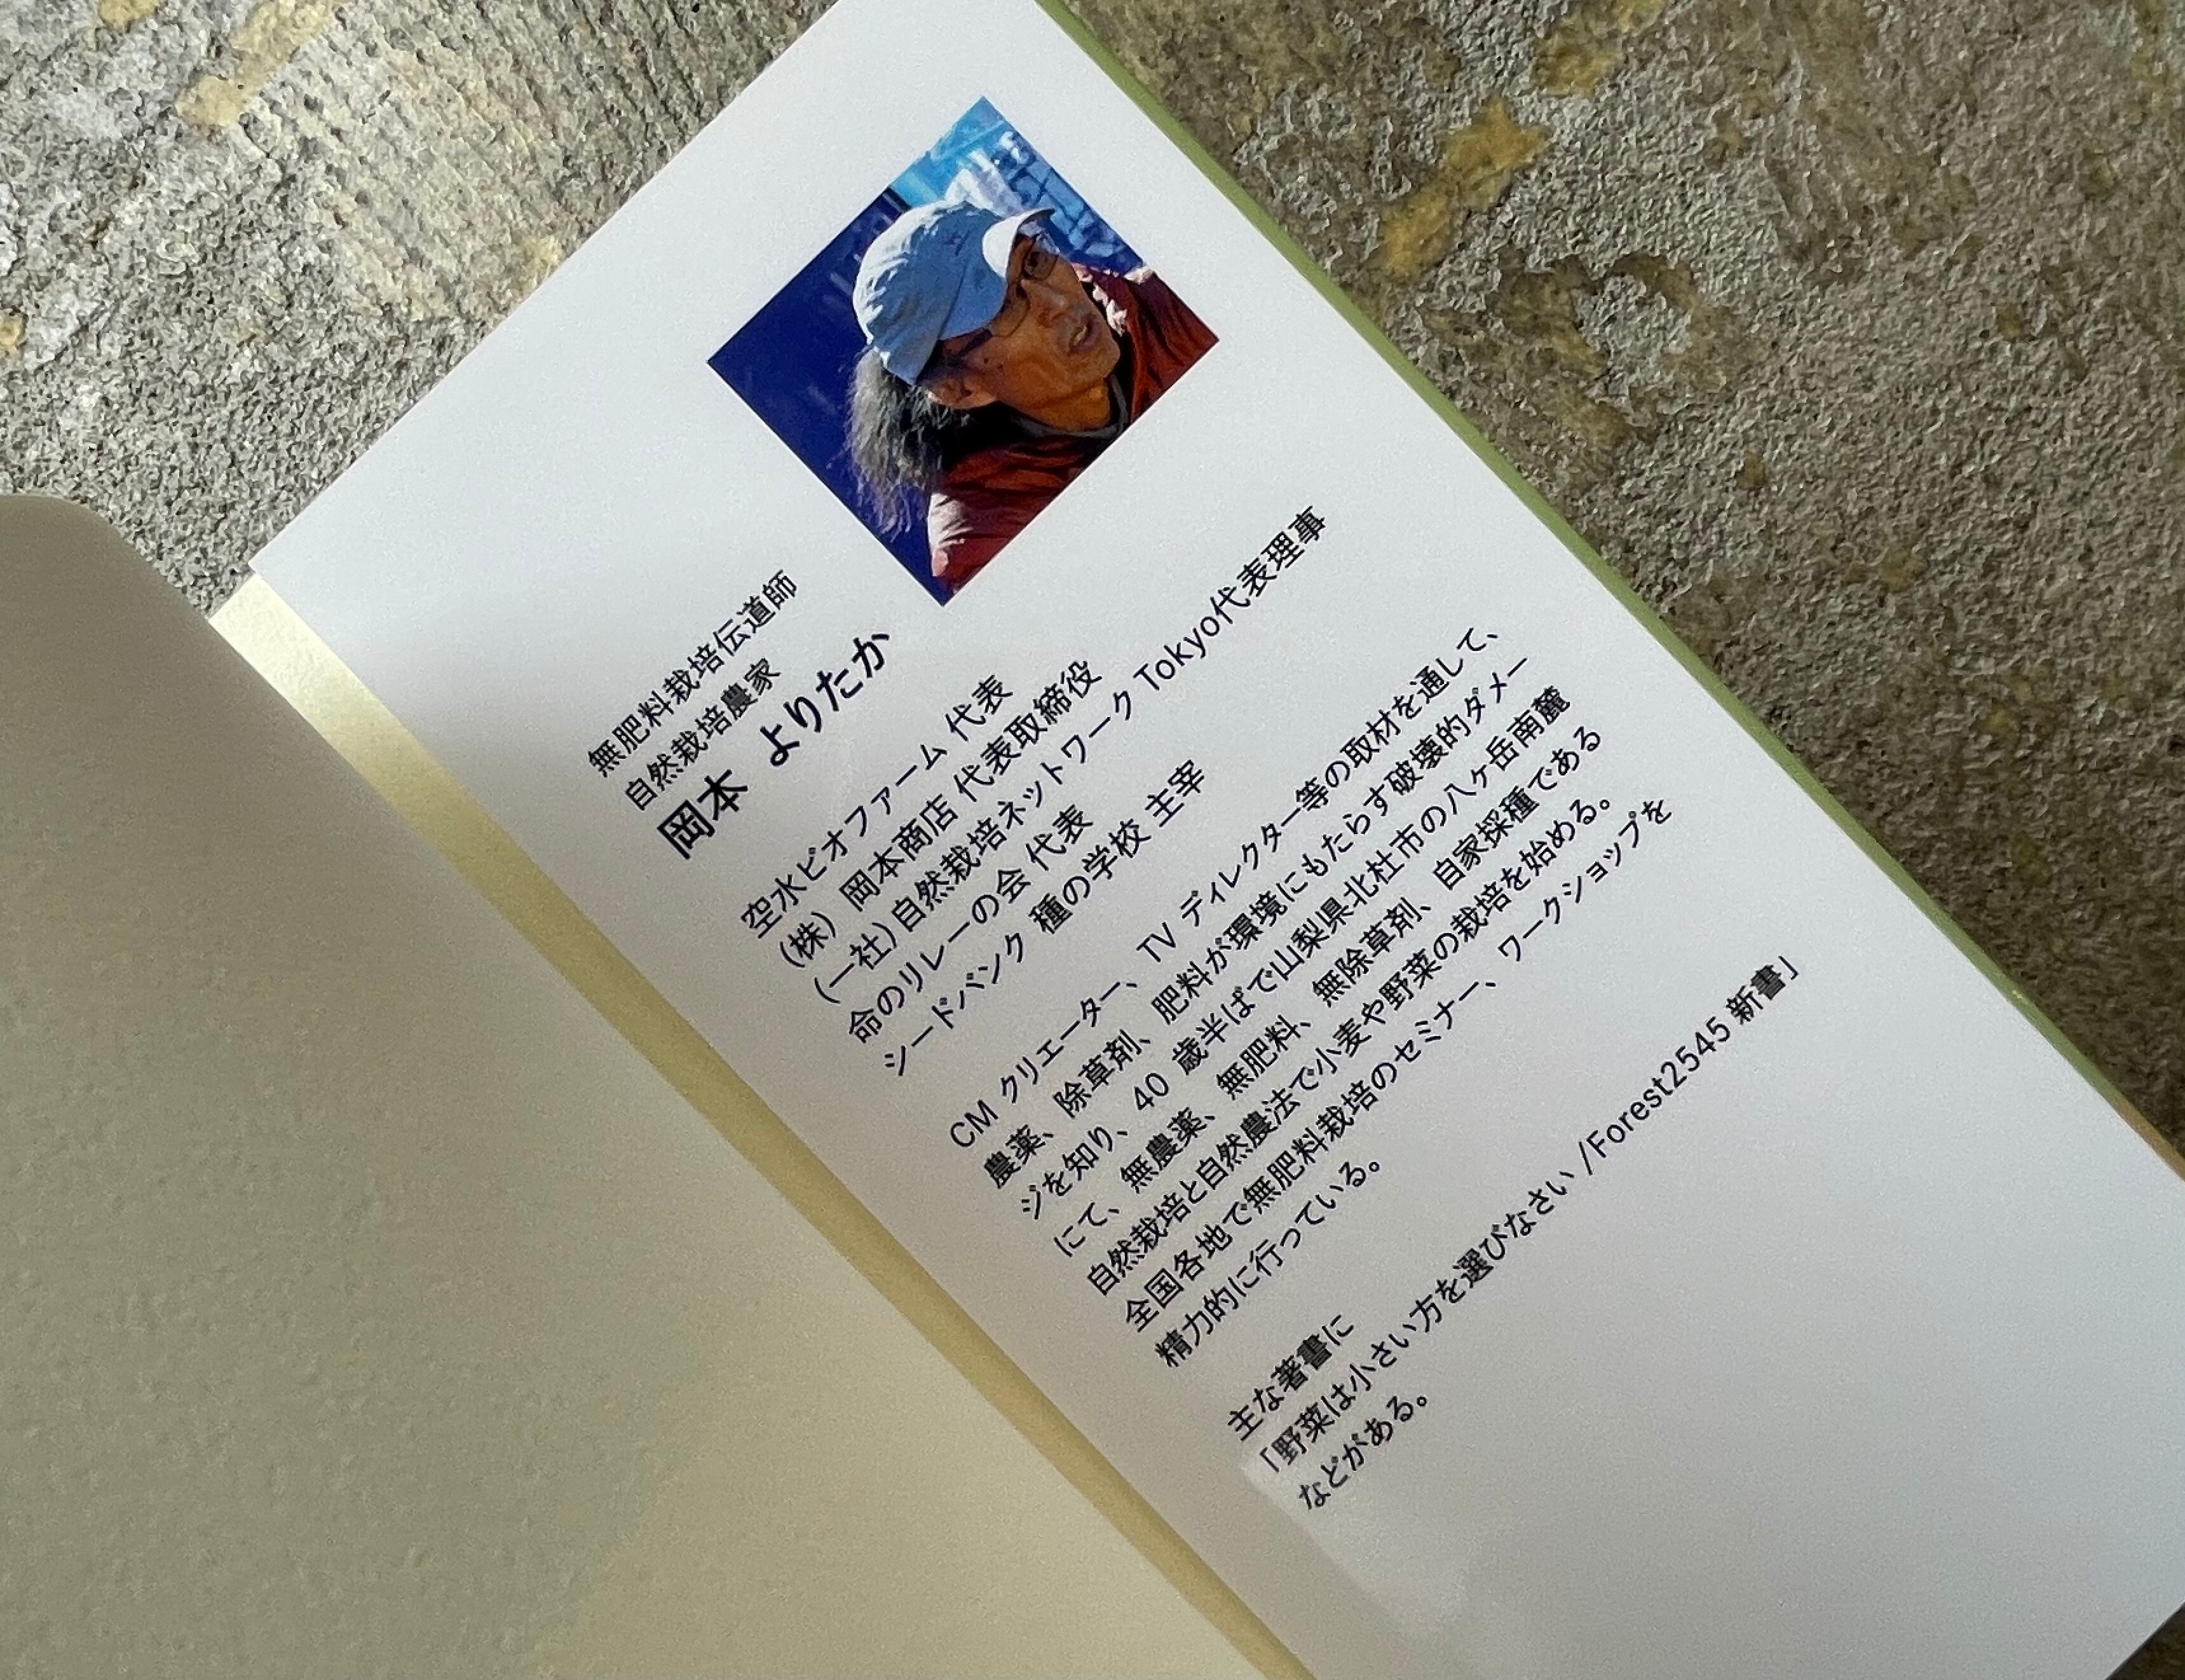 無肥料栽培伝道師
自然栽培農家
岡本 よりたか
空水ビオファーム 代表
(株) 岡本商店 代表取締役
(一社)自然栽培ネットワーク Tokyo代表理事
命のリレーの会 代表
シードバンク 種の学校 主宰
CM クリエーター、TV ディレクター等の取材を通して、
農薬、除草剤、肥料が環境にもたらす破壊的ダメー
ジを知り、40 歳半ばで山梨県北杜市の八ヶ岳南麓
にて、無農薬、無肥料、無除草剤、自家採種である
自然栽培と自然農法で小麦や野菜の栽培を始める。
全国各地で無肥料栽培のセミナー、ワークショップを
精力的に行っている。
主な著書に
「野菜は小さい方を選びなさい /Forest2545 新書」
などがある。